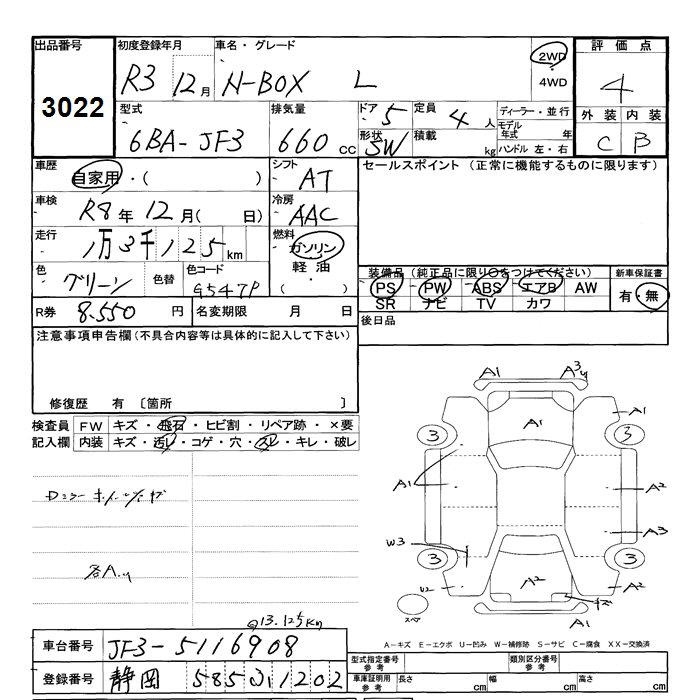 出品番号 初度登録年月 車名・グレード 2WD 評価点
3022 R3 12月 N-BOX L 4WD 4
型式 排気量 ドア 5 定員 4人 ディーラー・並行 外装 内装
6BA-JF3 660cc 形状 SW 積載 kg モデル年式 年 ハンドル 左・右 C B
車歴 自家用・( ) シフト AT セールスポイント (正常に機能するものに限ります)
車検 R8年12月( 日) 冷房 AAC
走行 1万3千125km 燃料 ガソリン
軽油
( )
色 グリーン 色替 色コード G547P
装備品(純正品に限り○をつけてください) 新車保証書
PS PW ABS エアB AW 有・無
SR ナビ TV カワ
R券 8.550円 名変期限 月 日 後日品
注意事項申告欄(不具合内容等は具体的に記入して下さい)
修復歴 有 〔箇所 〕
検査員 FW キズ・飛石・ヒビ割・リペア跡・×要
記入欄 内装 キズ・汚レ・コゲ・穴・スレ・キレ・破レ
A1 A3 y
A1 A1
3 3
A1 A2
W3 A3
3 3
U2 A2 A2
スペア A1
各A.y
@13.125km
A-キズ E-エクボ U-凹み W-補修跡 S-サビ C-腐食 XX-交換済
車台番号 JF3-5116908 型式指定番号 参考 類別区分番号 参考
登録番号 静岡 585 い1202 車庫証明用 参考 長さ cm 幅 cm 高さ cm